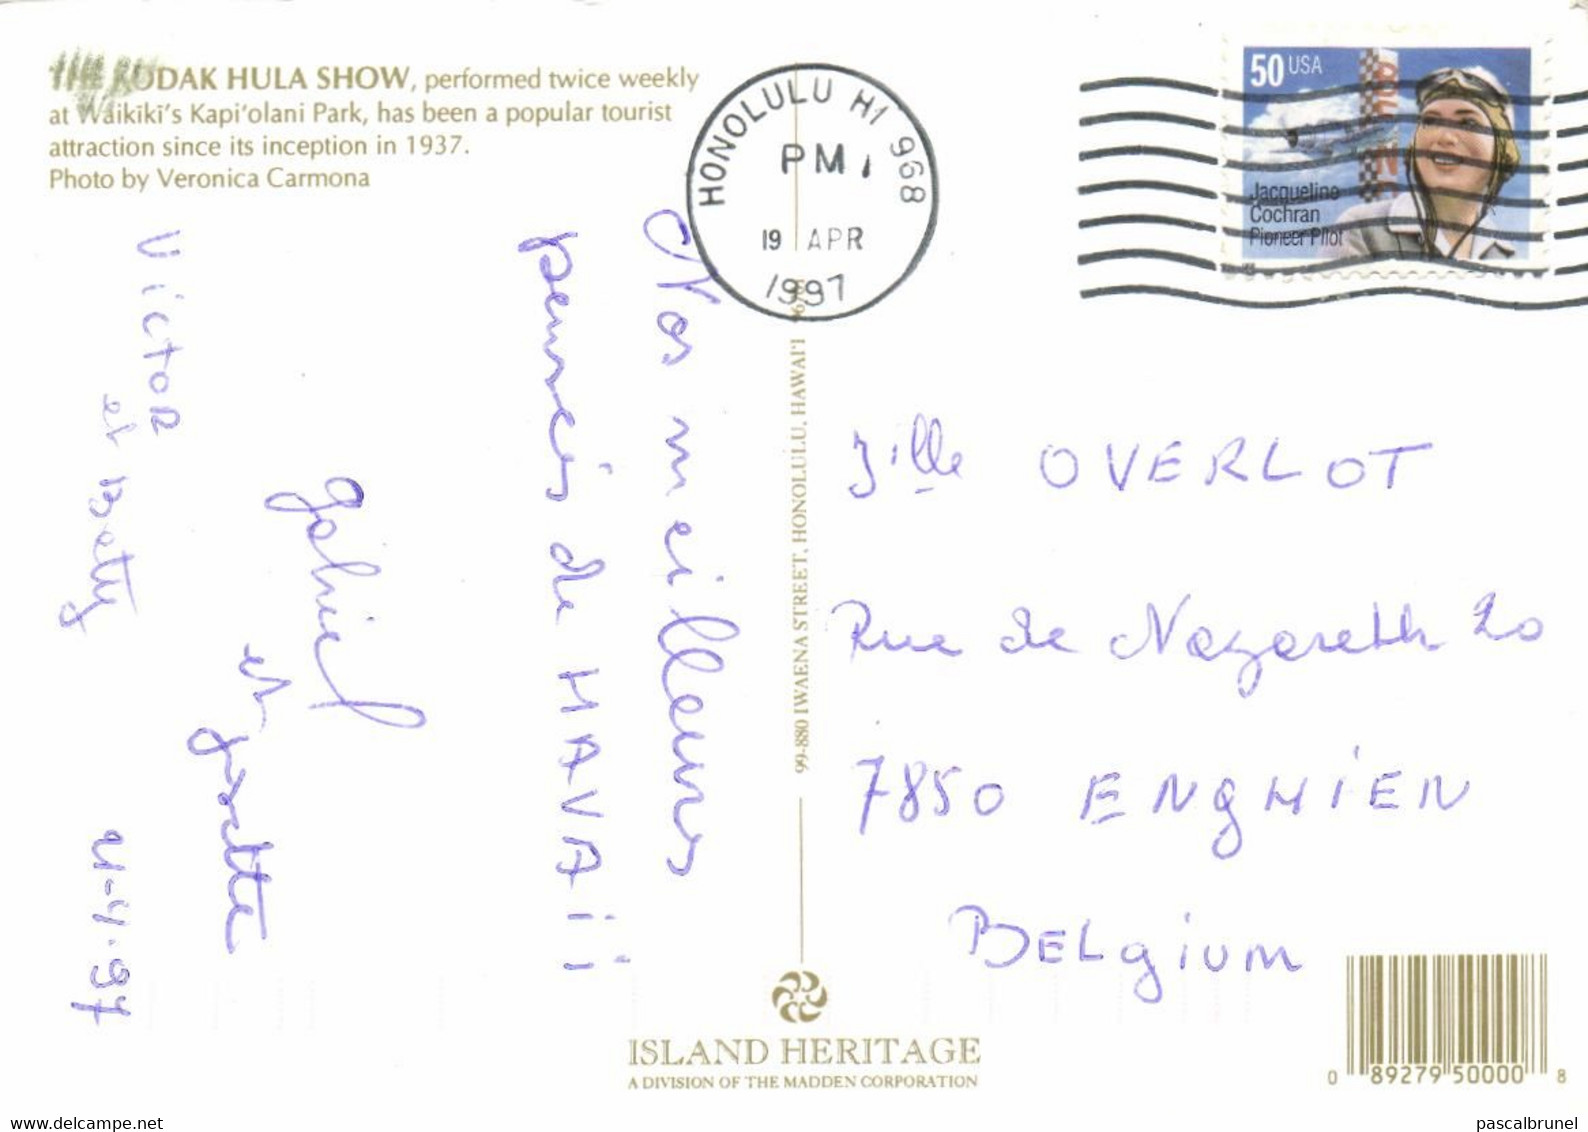 THE KODAK HULA SHOW, performed twice weekly
at Waikiki's Kapi'olani Park, has been a popular tourist
attraction since its inception in 1937.
Photo by Veronica Carmona
HONOLULU HI 968
PM
19 APR
1997
50 USA
Jacqueline
Cochran
Pioneer Pilot
Nos meilleures
pensées de HAVAii
gabriel
et josette
Victor
et Betty
4.97
99-880 IWAENA STREET, HONOLULU, HAWAI'I
OVERLOT
Rue de Nazareth 20
7850 ENGHIEN
BELgium
ISLAND HERITAGE
A DIVISION OF THE MADDEN CORPORATION
0 89279 50000 8
www.delcampe.net
pascalbrunel